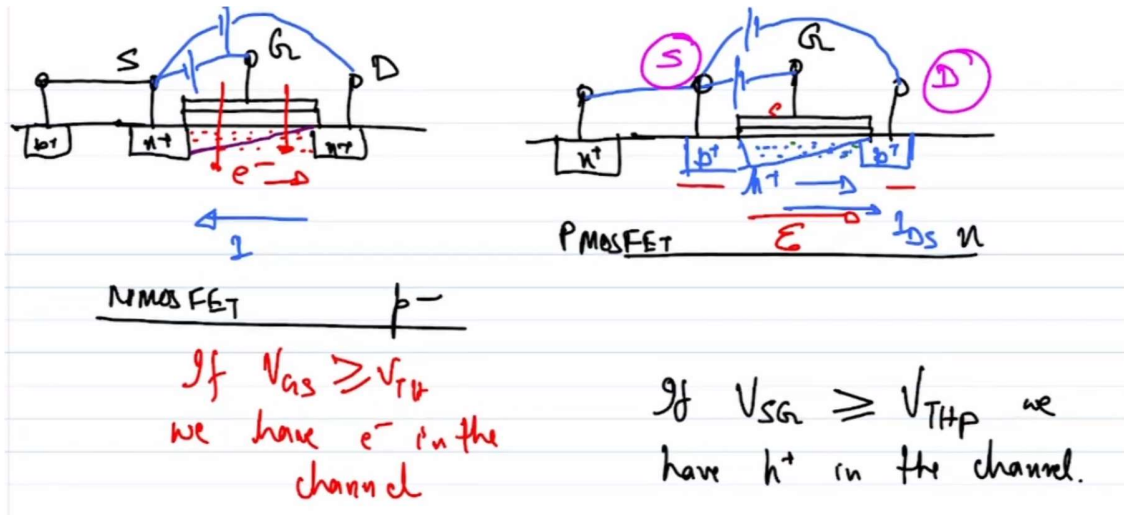 S
G
D
p+
n+
n+
e-
I
NMOSFET
p-
If VGS ≥ VTH
we have e- in the
channel
S
G
D
n+
p+
p+
h+
ε
IDS
PMOSFET
n
If VSG ≥ VTHP we
have h+ in the channel.